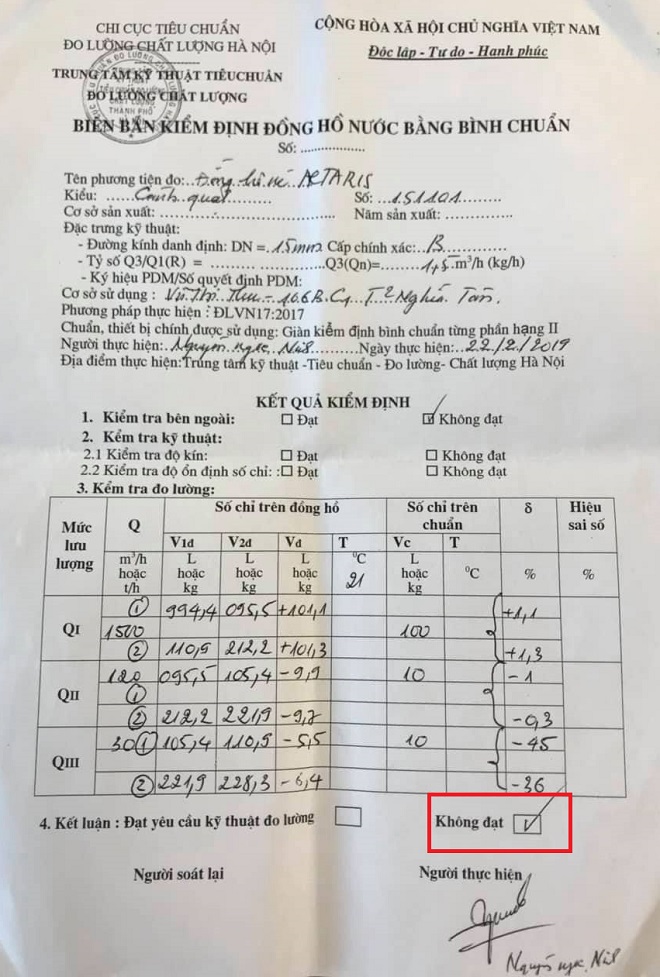 CHI CỤC TIÊU CHUẨN
ĐO LƯỜNG CHẤT LƯỢNG HÀ NỘI
TRUNG TÂM KỸ THUẬT TIÊU CHUẨN
ĐO LƯỜNG CHẤT LƯỢNG
CỘNG HÒA XÃ HỘI CHỦ NGHĨA VIỆT NAM
Độc lập - Tự do - Hạnh phúc
BIÊN BẢN KIỂM ĐỊNH ĐỒNG HỒ NƯỚC BẰNG BÌNH CHUẨN
Số: ..................
Tên phương tiện đo: Đồng hồ nước ACTARIS
Kiểu: Cánh quạt Số: 151101
Cơ sở sản xuất: .................. Năm sản xuất: ..............
Đặc trưng kỹ thuật:
- Đường kính danh định: DN = 15mm Cấp chính xác: B
- Tỷ số Q3/Q1(R) = .................. Q3(Qn)= 1,5 m³/h (kg/h)
- Ký hiệu PDM/Số quyết định PDM:
Cơ sở sử dụng : Vũ Thị Thu - 106B. T² Nghĩa Tân.
Phương pháp thực hiện : ĐLVN17:2017
Chuẩn, thiết bị chính được sử dụng: Giàn kiểm định bình chuẩn từng phần hạng II
Người thực hiện: Nguyễn Ngọc Ngày thực hiện: 22/2/2019
Địa điểm thực hiện:Trung tâm kỹ thuật -Tiêu chuẩn - Đo lường- Chất lượng Hà Nội
KẾT QUẢ KIỂM ĐỊNH
1. Kiểm tra bên ngoài: ☐ Đạt ☑ Không đạt
2. Kểm tra kỹ thuật:
2.1 Kiểm tra độ kín: ☐ Đạt ☐ Không đạt
2.2 Kiểm tra độ ổn định số chỉ: :☐ Đạt ☐ Không đạt
3. Kểm tra đo lường:
Mức lưu lượng Q Số chỉ trên đồng hồ Số chỉ trên chuẩn δ Hiệu sai số
V1đ V2đ Vđ T Vc T
m³/h hoặc t/h L hoặc kg L hoặc kg L hoặc kg °C 21 L hoặc kg °C % %
① 994,4 095,5 +101,1 +1,1
QI 1500 100
② 110,9 212,2 +101,3 +1,3
120 095,5 105,4 -9,9 10 -1
QII ①
② 212,2 221,9 -9,7 -0,3
30 ① 105,4 110,9 -5,5 10 -45
QIII
② 221,9 228,3 -6,4 -36
4. Kết luận : Đạt yêu cầu kỹ thuật đo lường ☐ Không đạt ☑
Người soát lại Người thực hiện
Nguyễn Ngọc